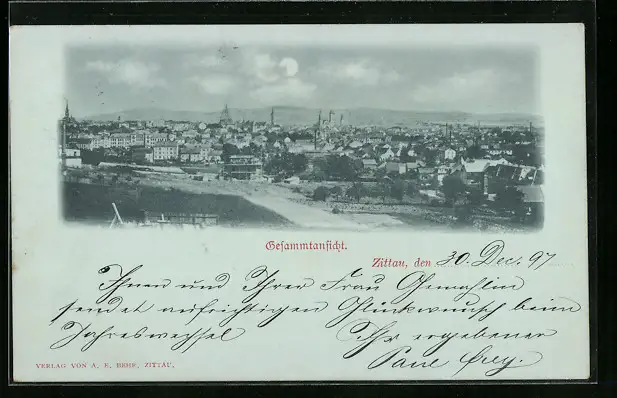 Gesammtansicht.
Zittau, den 30. Dec. 97
Ihnen und Ihrer Frau Gemahlin
sendet aufrichtigen Glückwunsch beim
Jahreswechsel
Ihr ergebener
Paul
VERLAG VON A. E. BEHR, ZITTAU.